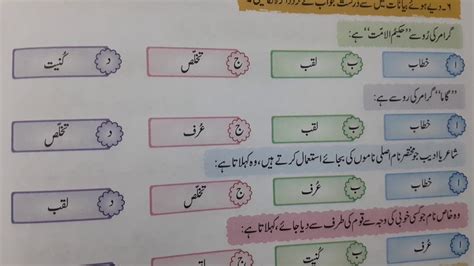 ۶۔ دیے ہوئے بیانات میں سے درست جواب کے گرد دائرہ لگائیں۔
گرامر کی رُو سے ”حکیم الامّت“ ہے:
ا خطاب ب لقب ج تخلص د کُنیت
”گاما“ گرامر کی رو سے ہے:
ا خطاب ب لقب ج عُرف د تخلص
شاعر یا ادیب جو مختصر نام اصلی ناموں کی بجائے استعمال کرتے ہیں، وہ کہلاتا ہے:
ا خطاب ب عُرف ج تخلص د لقب
وہ خاص نام جو کسی خوبی کی وجہ سے قوم کی طرف سے دیا جائے، کہلاتا ہے:
ا خطاب ب کُنیت ج عُرف د لقب